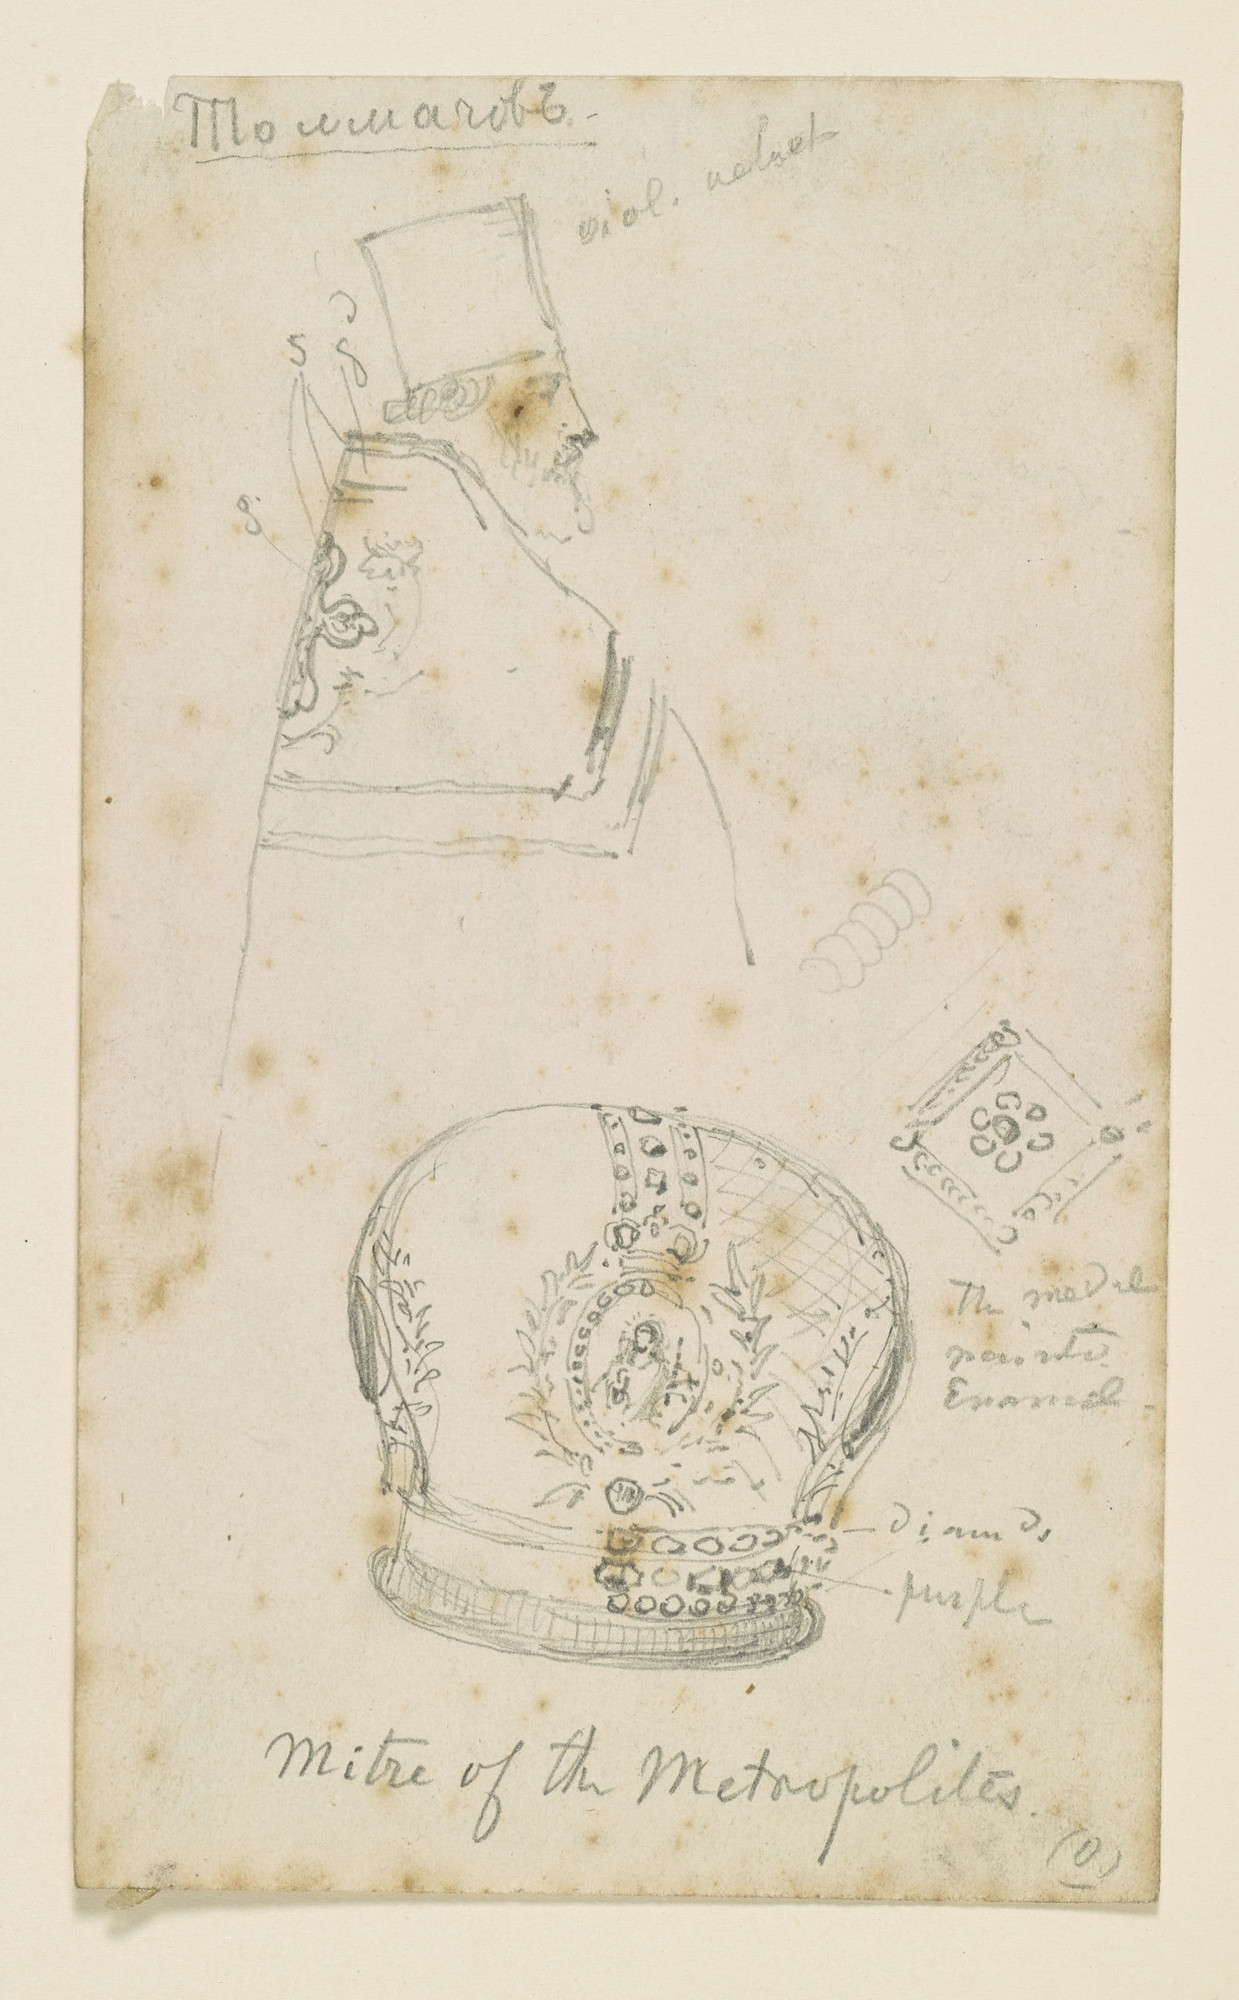 Толмачовъ.
viol. velvet
g
s
g
The medal
painted
Enamel.
diamds
purple
Mitre of the Metropolites.
(O.)